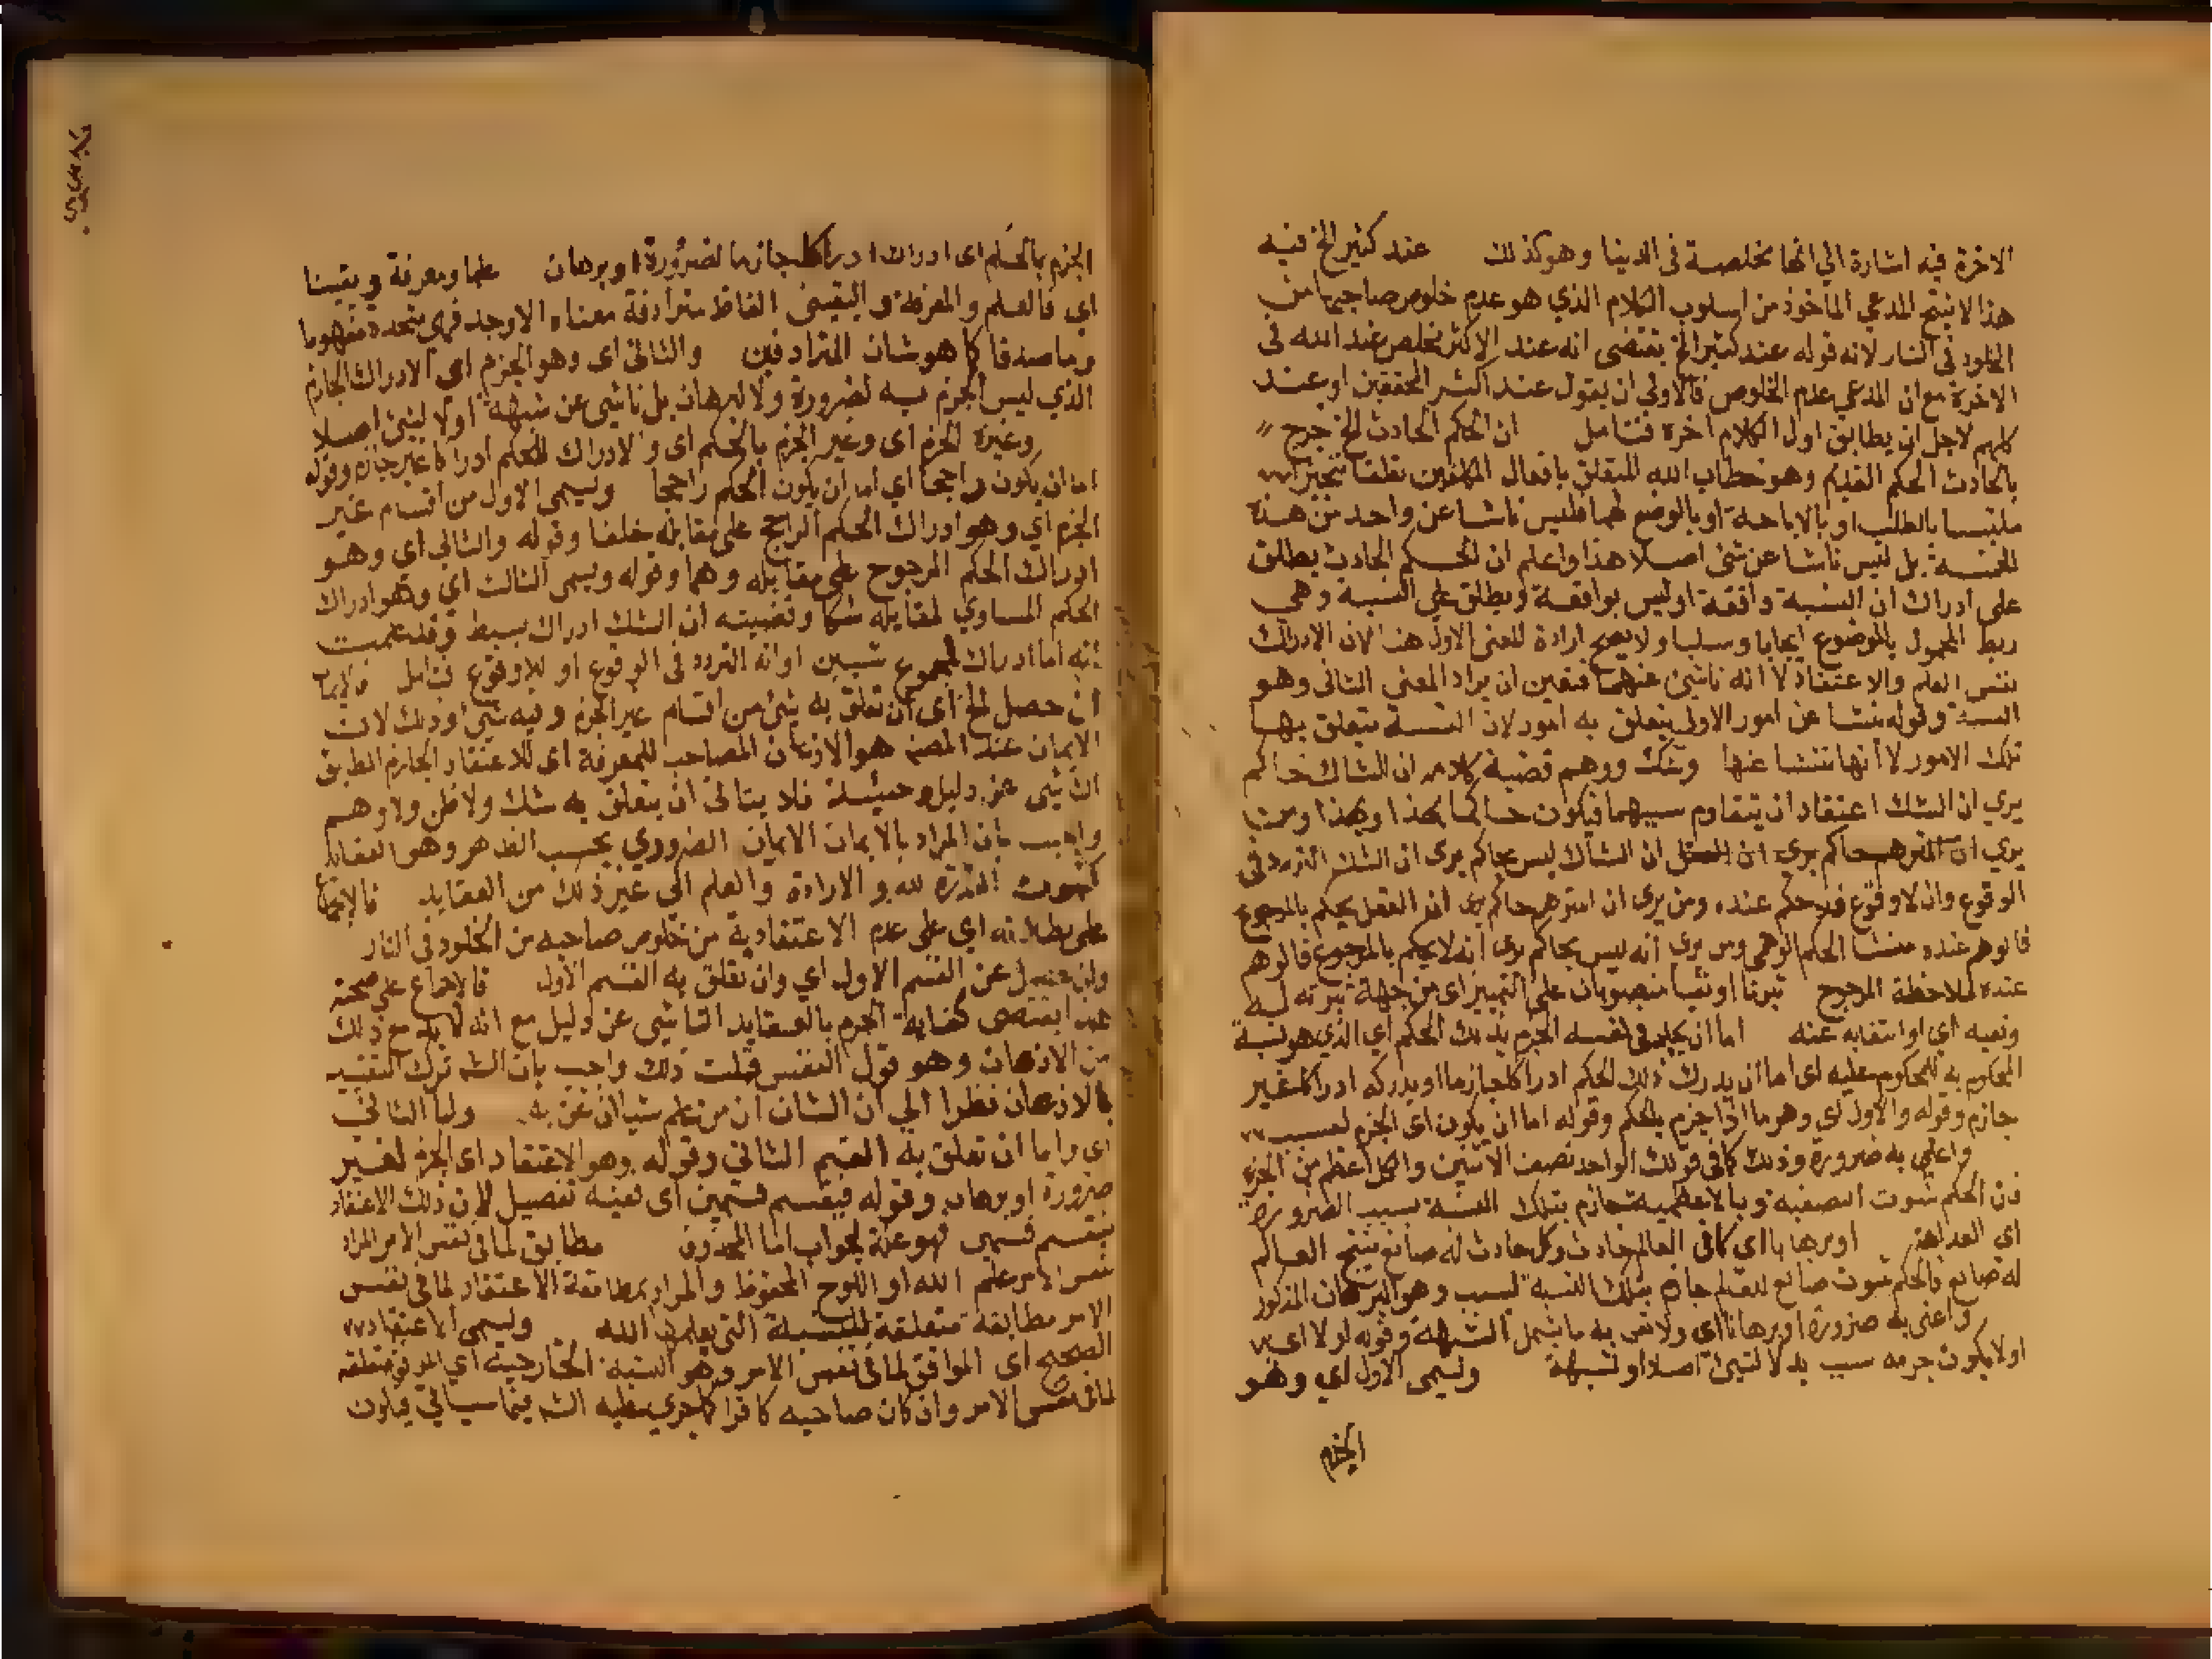 الاخرة فيه اشارة الي انها مخلصة في الدينا وهو كذلك عند كثير الخ فيه
هذا لا ينتج المدعي الماخوذ من اسلوب الكلام الذي هو عدم خلوص صاحبها من
الخلود في النار لانه قوله عند كثير الخ يقتضى انه عند الاكثر مخلص عند الله في
الاخرة مع ان المدعي عدم الخلوص فالاولى ان يقول عند اكثر المحققين او عند
كلهم لاجل ان يطابق اول الكلام اخره فتامل ان الحكم الحادث الخ خرج
بالحادث الحكم القديم وهو خطاب الله المتعلق بافعال المكلفين تعلقا تنجيزيا
ملتبسا بالطلب او بالاباحة او بالوضع لهما فليس ناشا عن واحد من هذه
الخمسة بل ليس ناشا عن شئ اصلا هذا واعلم ان الحكم الحادث يطلق
على ادراك ان النسبة واقعة او ليس بواقعة ويطلق علي النسبة وهي
ربط المحمول بالموضوع ايجابا وسلبا ولا يصح ارادة المعنى الاول هنا لان الادراك
نفس العلم والاعتقاد لا انه ناشئ عنهما فتعين ان يراد المعني الثانى وهو
النسبة وقوله ينشا عن امور الاولى يتعلق به امور لان النسبة تتعلق بها
تلك الامور لا أنها تنشا عنها وشك ووهم قضية كلامه ان الشاك حاكم
يري ان الشك اعتقاد ان يتقاوم سببهما فيكون حاكما بهذا وبهذا وممن
يري ان المتوهم حاكم يرى ان الشاك ليس بحاكم يرى ان الشك التردد في
الوقوع وان لا وقوع فلا حكم عنده ومن يرى ان المتوهم حاكم يرى ان العقل يحكم بالمرجوح
فالوهم عنده منشا الحكم الوهمي ومن يرى أنه ليس بحاكم يرى انه لا يحكم بالمرجوح فالوهم
عنده ملاحظة المرجوح ثبوتا او نفيا منصوبان على التمييز اى من جهة ثبوته له
ونفيه اي او انتفايه عنه اما ان يجد في نفسه الجزم بذلك الحكم اي الذي هو نسبة
المحكوم به للمحكوم عليه اى اما ان يدرك ذلك الحكم ادراكا جازما او يدركه ادراكا غير
جازم وقوله والاول اي وهو ما اذا جزم بالحكم وقوله اما ان يكون اى الجزم لسبب
واعني به ضرورة وذلك كما في قولك الواحد نصف الاثنين والكل اعظم من الجزء
فان الحكم ثبوت النصفية وبالاعظمية جازم بتلك النسبة بسبب الضرورة
اي البداهة او برهانا اي كما في العالم حادث وكل حادث له صانع ينتج العالم
له صانع فالحكم ثبوت صانع للعالم جازم بتلك النسبة لسبب وهو البرهان المذكور
واعنى به ضرورة او برهانا اى ولا نعني به ما يشمل الشبهة وقوله او لا اى
او لا يكون جزمه سبب بل لا لشئ اصلا او لشبهة ويسمى الاول اي وهو
الجزم
الجزم بالحكم اى ادراك ادراكا جازما لضرورة او برهان علما ومعرفة ويقينا
اي فالعلم والمعرفة واليقين الفاظ مترادفة معناها لاوجد فهي متحدة مفهوما
وماصدقا كما هو شان المترادفين والثانى اى وهو الجزم اى الادراك الجازم
الذي ليس الجزم به لضرورة ولا لبرهان بل ناشى عن شبهة او لا لشئ اصلا
وغيره الجزم اى وغير الجزم بالحكم اى والادراك للحكم ادراكا غير جازم وقوله
اما ان يكون راجحا اي اما ان يكون الحكم راجحا ويسمى الاول من اقسام غير
الجزم اي وهو ادراك الحكم الراجح على مقابله ظنا وقوله والثاني اى وهو
ادراك الحكم المرجوح على مقابله وهما وقوله ويسمى الثالث اي وهو ادراك
الحكم المساوي لمقابله شكا وقضيته ان الشك ادراك بسيط وقد علمت
انه اما ادراك لمجموع شيين او انه التردد في الوقوع او اللاوقوع فتامل فالايمان
ان حصل الخ اى ان تعلق به شئ من اقسام غير الجزم وفيه شئ وذلك لان
الايمان عند المصنف هو الاذعان المصاحب للمعرفة اى للاعتقاد الجازم المطابق
الناشى عن دليل وحينئذ فلا يتاتى ان يتعلق به شك ولا ظن ولا وهم
واجيب بان المراد بالايمان الايمان الضروري بحسب الظاهر وهو العقايد
كثبوت القدرة لله والارادة والعلم الى غير ذلك من العقايد فالاجماع
على بطلانه اي على عدم الاعتقادية من خلوص صاحبه من الخلود فى النار
وان حصل عن القسم الاول اي وان تعلق به القسم الاول فالاجماع على صحته
هذا يقتضى كفاية الجزم بالعقايد الناشى عن دليل مع انه لا بد مع ذلك
من الاذعان وهو قول النفس قبلت ذلك واجيب بان الشه ترك التقييد
بالاذعان نظرا الي ان الشان ان من علم شيا اذعن به واما الثاني
اى واما ان تعلق به القسم الثاني وقوله وهو الاعتقاد اى الجزم لغير
ضرورة او برهان وقوله فينقسم قسمين اى نفيه تفصيل لان ذلك الاعتقاد
ينقسم قسمين فهو علة لجواب اما المحذوف مطابق لما فى نفس الامر المراد
بنفس الامر علم الله او اللوح المحفوظ والمراد بمطابقة الاعتقاد لما في نفس
الامر مطابقة متعلقة للنسبة التى يعلمها الله ويسمى الاعتقاد
الصحيح اى الموافق لما فى نفس الامر وهو النسبة الخارجية اي الموافق متعلقه
لما فى نفس الامر وان كان صاحبه كافرا كما جرى عليه الشه فيما سياتي فيكون